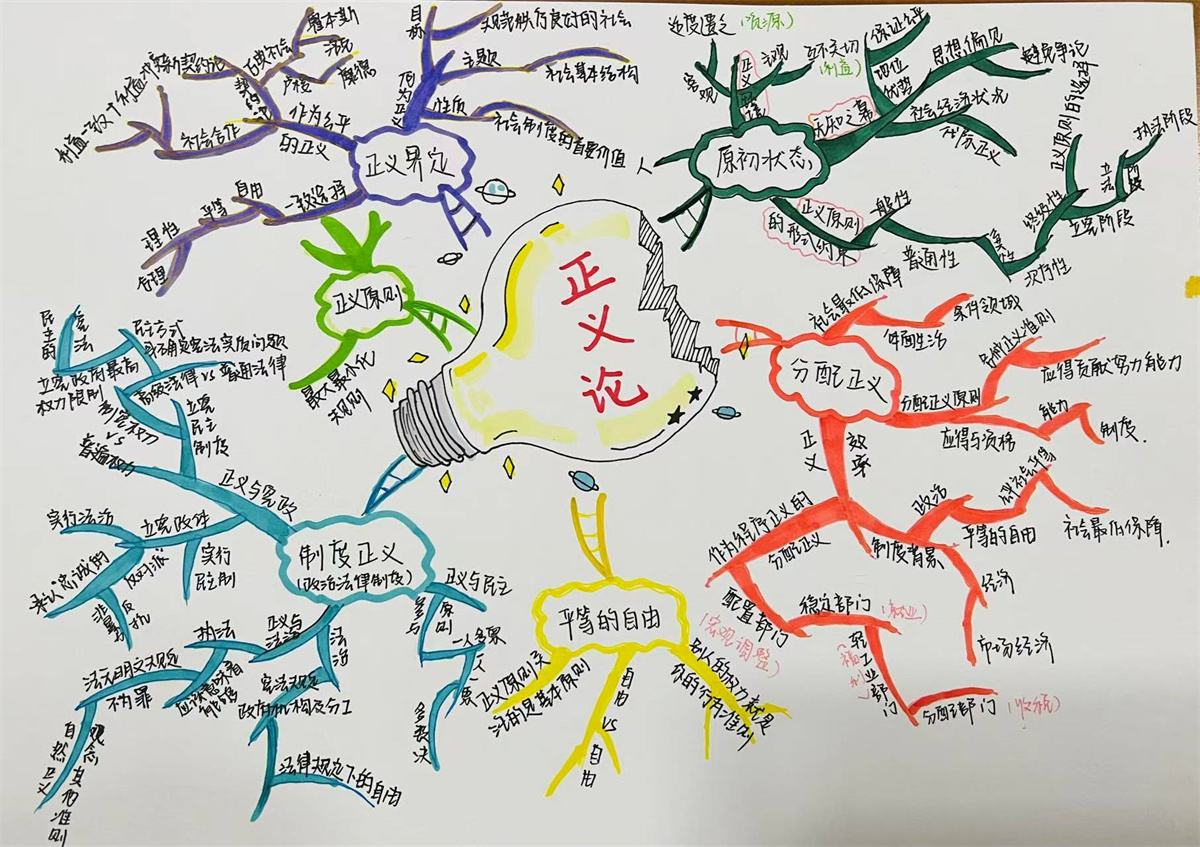 正义论
正义界定
何为正义
目标
实现或执行良好的社会
主题
社会基本结构
性质
社会制度的首要价值
作为公平
的正义
契约论
古典社会
霍布斯
洛克
卢梭
康德
新契约论
社会合作
利益一致
一致选择
自由
平等
理性
合理
正义原则
最大最小化
原初状态
客观
适度匮乏(资源)
正义环境
主观
互不关切
(利益)
人
无知之幕
地位
优势
保证公平
思想偏见
社会经济状况
代际正义
正义原则
的形式约束
一般性
普遍性
公共性
次序性
终极性
正义原则的选择
立宪阶段
立法阶段
执法阶段
分配正义
社会最低保障
体面生活
条件领域
分配正义原则
各种正义准则
应得贡献努力能力
应得与资格
能力
制度
正义
效率
作为程序正义的
分配正义
配置部门
(宏观调整)
稳定部门
(就业)
转让部门
(福利)
分配部门
(收税)
制度背景
政治
平等的自由
公平机会平等
社会最低保障
经济
市场经济
平等的自由
正义原则关
注的是基本原则
自由
VS
自由
别人的努力就是
你的行为准则
制度正义
(政治法律制度)
正义与宪政
立宪民主制度
高级法律VS普通法律
民主方式
确定宪法实质问题
民主的
宪法
立宪政府最高
权力限制
制宪权力
VS
普遍权力
立宪政体
实行
民主制
实行法治
承认忠诚的
反对派
非暴力反抗
正义与
法治
法治
宪法规定
政府机构及分工
法律规定下的自由
执法
应该意味着
能够
法无明文规定
不为罪
自然正义
观念
其他准则
正义与民主
参与
原则
一人一票
多数决